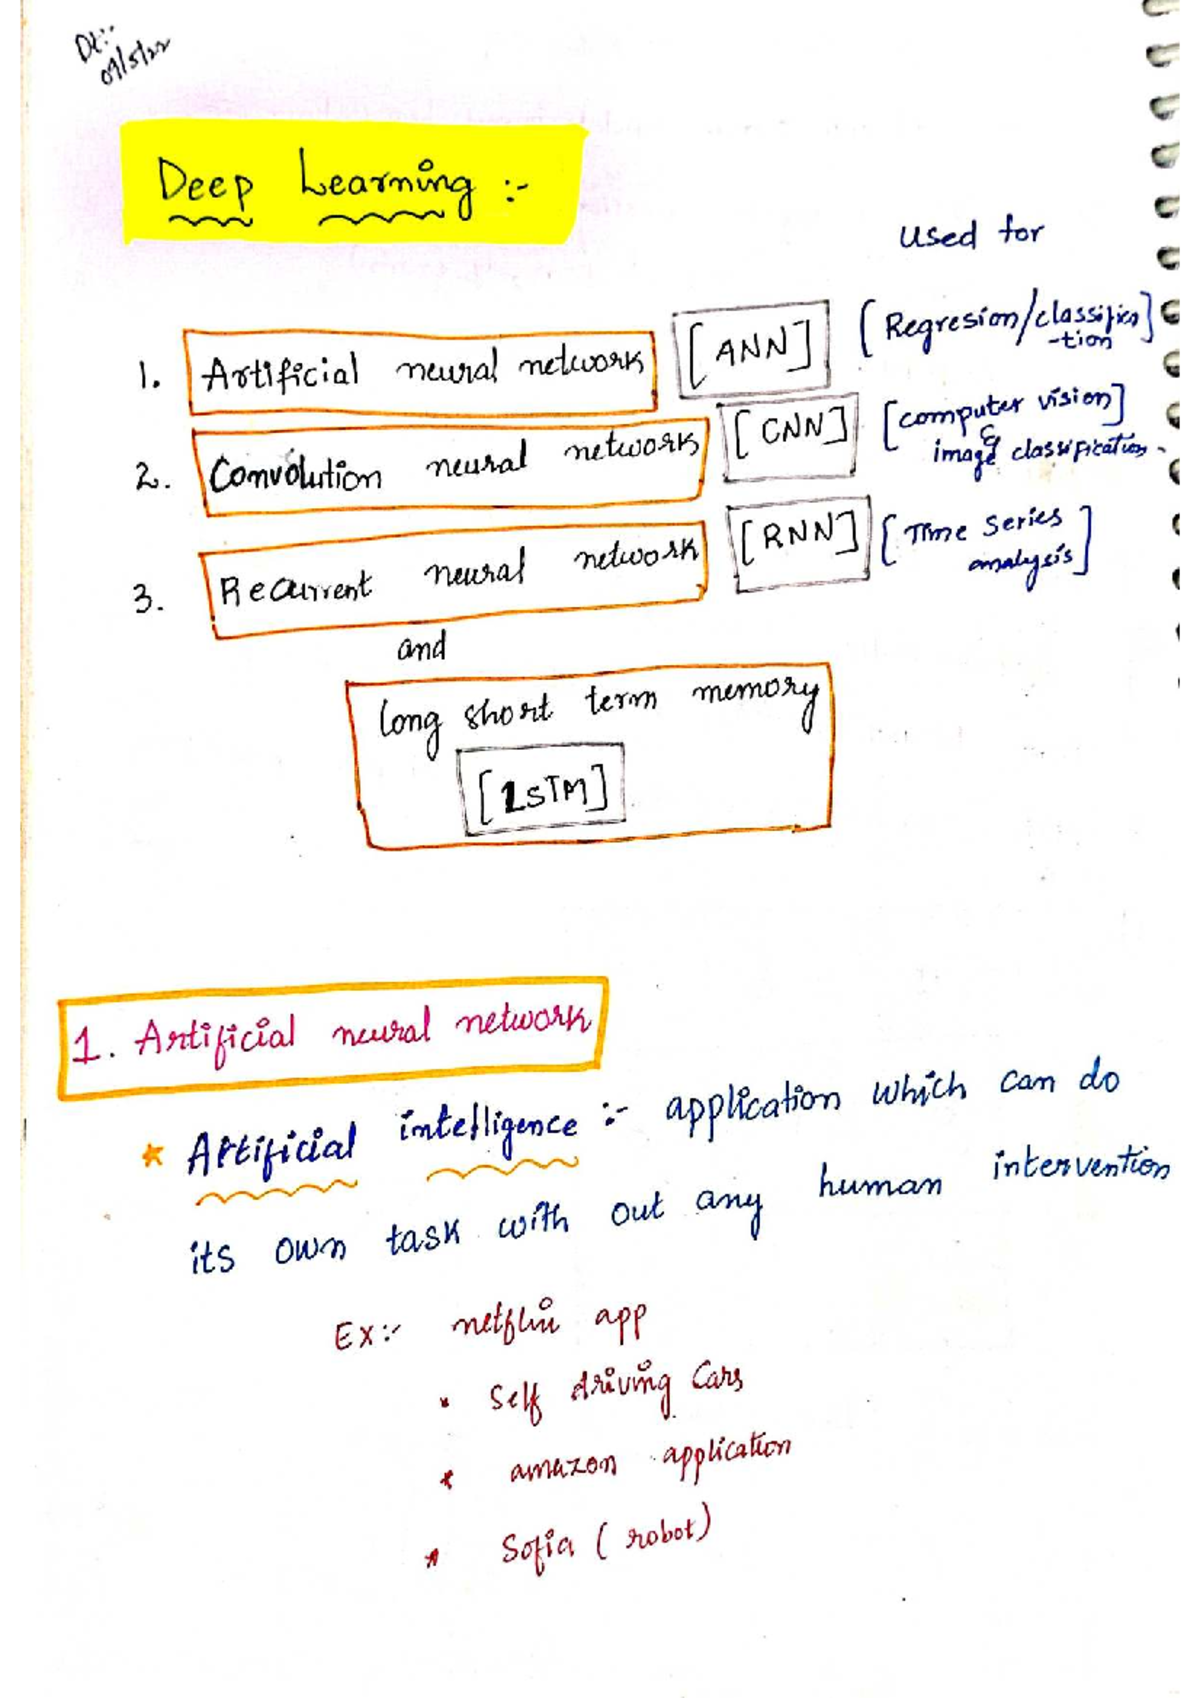 Dt:-
09/5/22
Deep Learning :-
used for
1. Artificial neural network [ANN] [Regresion/classifica
-tion]
2. Convolution neural network [CNN] [computer vision]
& image classification
3. Recurrent neural network [RNN] [Time Series
analysis]
and
long short term memory
[LSTM]
1. Artificial neural network
* Artificial intelligence :- application which can do
its own task with out any human intervention
Ex:- netflix app
* Self driving Cars
* amazon application
* Sofia (robot)